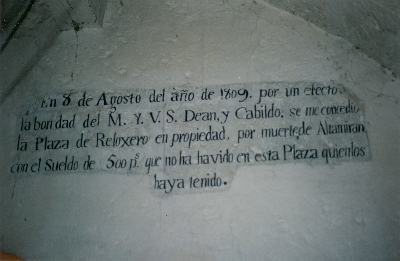 En 8 de Agosto del año de 1809. por un efecto
la bondad del M. Y. V. S. Dean, y Cabildo, se me concedio
la Plaza de Reloxero en propiedad, por muerte de Altamiran
con el Sueldo de 500 ps. que no ha havido en esta Plaza quien los
haya tenido.